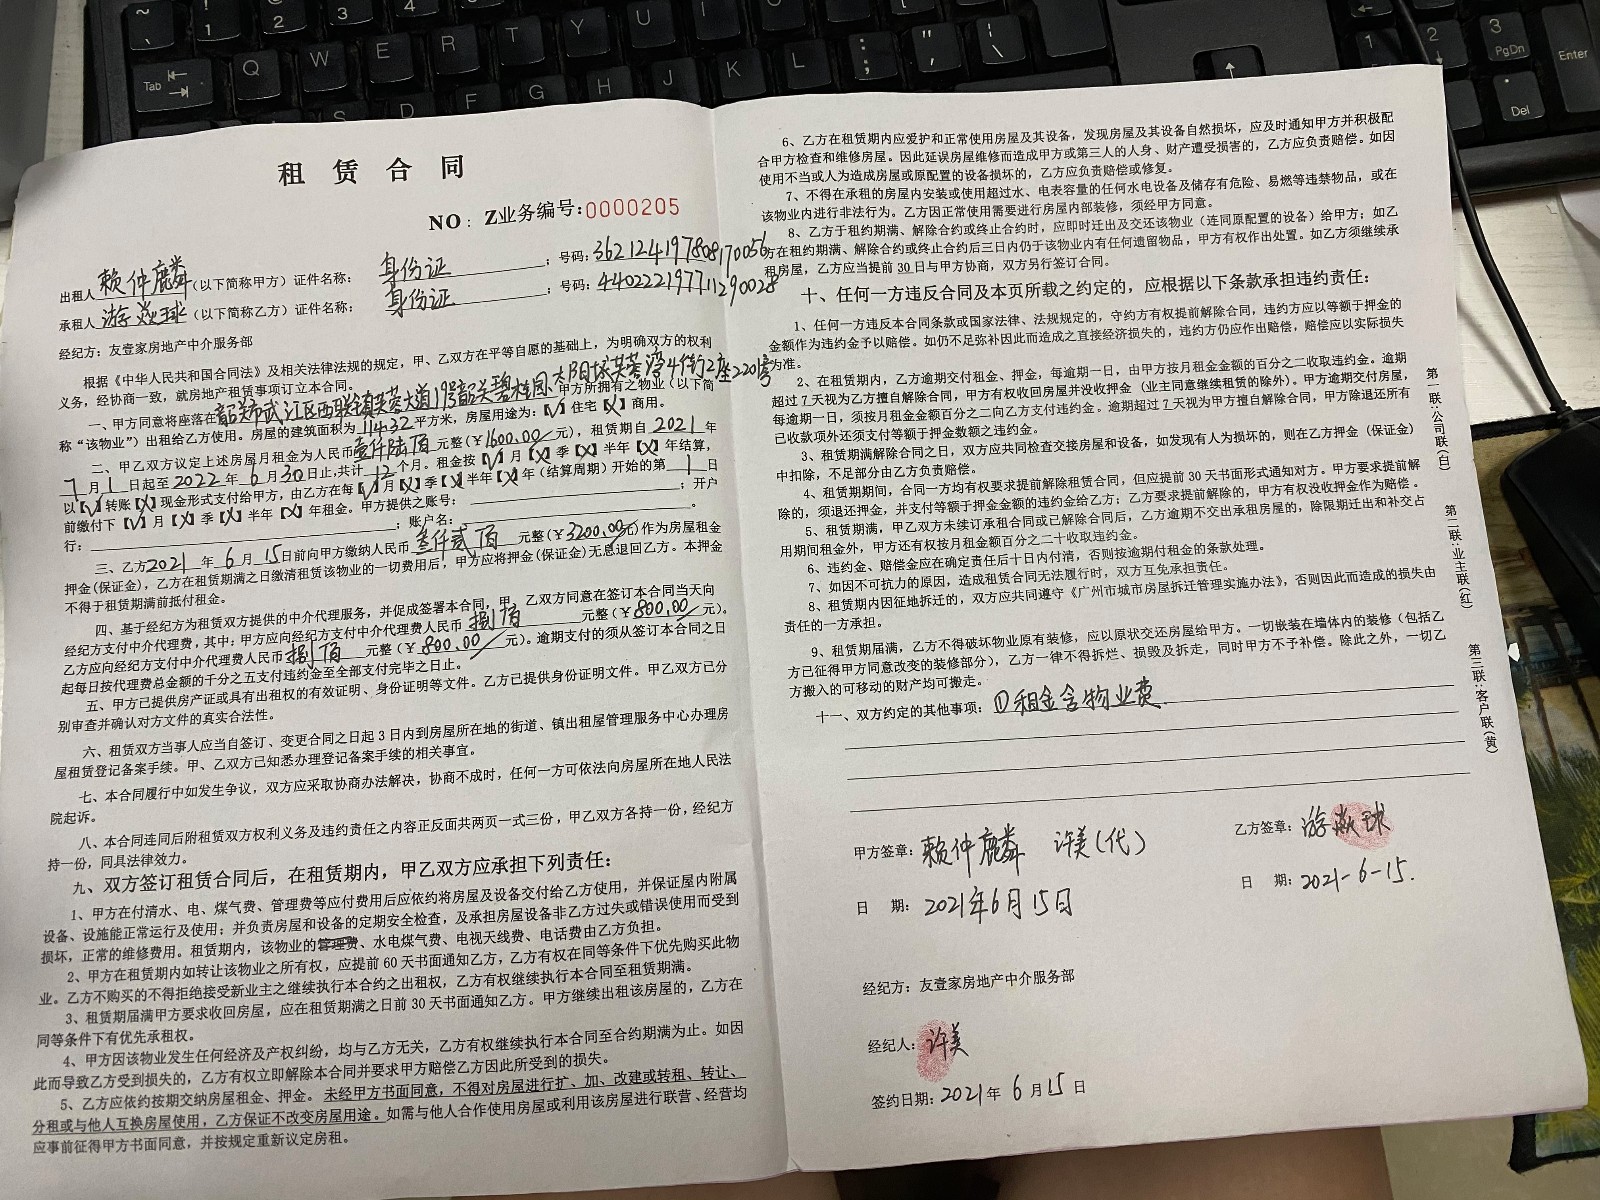 租 赁 合 同
NO：Z业务编号:0000205
出租人 赖仲麟 (以下简称甲方) 证件名称: 身份证 ；号码: 362124197808170056
承租人 游焱球 (以下简称乙方) 证件名称: 身份证 ；号码: 440222197711290028
经纪方: 友壹家房地产中介服务部
根据《中华人民共和国合同法》及相关法律法规的规定，甲、乙双方在平等自愿的基础上，为明确双方的权利
义务，经协商一致，就房地产租赁事项订立本合同。
一、甲方同意将座落在韶关市武江区西联镇芙蓉大道19号韶关碧桂园太阳城芙蓉湾4街2座2201号 甲方所拥有之物业（以下简
称“该物业”）出租给乙方使用。房屋的建筑面积为 114.32 平方米，房屋用途为:【√】住宅【X】商用。
二、甲乙双方议定上述房屋月租金为人民币壹仟陆佰 元整(￥1600.00 元)，租赁期自 2021 年
7 月 1 日起至 2022 年 6 月 30 日止,共计 12 个月。租金按【√】月【X】季【X】半年【X】年结算，
以【√】转账【X】现金形式支付给甲方，由乙方在每【√】月【X】季【X】半年【X】年（结算周期）开始的第 1 日
前缴付下【√】月【X】季【X】半年【X】年租金。甲方提供之账号: ；开户
行: ；账户名: 。
三、乙方2021 年 6 月 15 日前向甲方缴纳人民币 叁仟贰佰 元整(￥3200.00元)作为房屋租金
押金(保证金)，乙方在租赁期满之日缴清租赁该物业的一切费用后，甲方应将押金(保证金)无息退回乙方。本押金
不得于租赁期满前抵付租金。
四、基于经纪方为租赁双方提供的中介代理服务，并促成签署本合同，甲、乙双方同意在签订本合同当天向
经纪方支付中介代理费，其中: 甲方应向经纪方支付中介代理费人民币 捌佰 元整(￥800.00 元)。
乙方应向经纪方支付中介代理费人民币 捌佰 元整(￥800.00 元)。逾期支付的须从签订本合同之日
起每日按代理费总金额的千分之五支付违约金至全部支付完毕之日止。
五、甲方已提供房产证或具有出租权的有效证明、身份证明等文件。乙方已提供身份证明文件。甲乙双方已分
别审查并确认对方文件的真实合法性。
六、租赁双方当事人应当自签订、变更合同之日起 3 日内到房屋所在地的街道、镇出租屋管理服务中心办理房
屋租赁登记备案手续。甲、乙双方已知悉办理登记备案手续的相关事宜。
七、本合同履行中如发生争议，双方应采取协商办法解决，协商不成时，任何一方可依法向房屋所在地人民法
院起诉。
八、本合同连同后附租赁双方权利义务及违约责任之内容正反面共两页一式三份，甲乙双方各持一份，经纪方
持一份，同具法律效力。
九、双方签订租赁合同后，在租赁期内，甲乙双方应承担下列责任:
1、甲方在付清水、电、煤气费、管理费等应付费用后应依约将房屋及设备交付给乙方使用，并保证屋内附属
设备、设施能正常运行及使用; 并负责房屋和设备的定期安全检查，及承担房屋设备非乙方过失或错误使用而受到
损坏，正常的维修费用。租赁期内，该物业的管理费、水电煤气费、电视天线费、电话费由乙方负担。
2、甲方在租赁期内如转让该物业之所有权，应提前 60 天书面通知乙方，乙方有权在同等条件下优先购买此物
业。乙方不购买的不得拒绝接受新业主之继续执行本合约之出租权，乙方有权继续执行本合同至租赁期满。
3、租赁期届满甲方要求收回房屋，应在租赁期满之日前 30 天书面通知乙方。甲方继续出租该房屋的，乙方在
同等条件下有优先承租权。
4、甲方因该物业发生任何经济及产权纠纷，均与乙方无关，乙方有权继续执行本合同至合约期满为止。如因
此而导致乙方受到损失的，乙方有权立即解除本合同并要求甲方赔偿乙方因此所受到的损失。
5、乙方应依约按期交纳房屋租金、押金。未经甲方书面同意，不得对房屋进行扩、加、改建或转租、转让、
分租或与他人互换房屋使用，乙方保证不改变房屋用途。如需与他人合作使用房屋或利用该房屋进行联营、经营均
应事前征得甲方书面同意，并按规定重新议定房租。
6、乙方在租赁期内应爱护和正常使用房屋及其设备，发现房屋及其设备自然损坏，应及时通知甲方并积极配
合甲方检查和维修房屋。因此延误房屋维修而造成甲方或第三人的人身、财产遭受损害的，乙方应负责赔偿。如因
使用不当或人为造成房屋或原配置的设备损坏的，乙方应负责赔偿或修复。
7、不得在承租的房屋内安装或使用超过水、电表容量的任何水电设备及储存有危险、易燃等违禁物品，或在
该物业内进行非法行为。乙方因正常使用需要进行房屋内部装修，须经甲方同意。
8、乙方于租约期满、解除合约或终止合约时，应即时迁出及交还该物业（连同原配置的设备）给甲方；如乙
方在租约期满、解除合约或终止合约后三日内仍于该物业内有任何遗留物品，甲方有权作出处置。如乙方须继续承
租房屋，乙方应当提前 30 日与甲方协商，双方另行签订合同。
十、任何一方违反合同及本页所载之约定的，应根据以下条款承担违约责任:
1、任何一方违反本合同条款或国家法律、法规规定的，守约方有权提前解除合同，违约方应以等额于押金的
金额作为违约金予以赔偿。如仍不足弥补因此而造成之直接经济损失的，违约方仍应作出赔偿，赔偿应以实际损失
为准。
2、在租赁期内，乙方逾期交付租金、押金，每逾期一日，由甲方按月租金金额的百分之二收取违约金。逾期
超过 7 天视为乙方擅自解除合同，甲方有权收回房屋并没收押金（业主同意继续租赁的除外）。甲方逾期交付房屋，
每逾期一日，须按月租金金额百分之二向乙方支付违约金。逾期超过 7 天视为甲方擅自解除合同，甲方除退还所有
已收款项外还须支付等额于押金数额之违约金。
3、租赁期满解除合同之日，双方应共同检查交接房屋和设备，如发现有人为损坏的，则在乙方押金（保证金）
中扣除，不足部分由乙方负责赔偿。
4、租赁期期间，合同一方均有权要求提前解除租赁合同，但应提前 30 天书面形式通知对方。甲方要求提前解
除的，须退还押金，并支付等额于押金金额的违约金给乙方；乙方要求提前解除的，甲方有权没收押金作为赔偿。
5、租赁期满，甲乙双方未续订承租合同或已解除合同后，乙方逾期不交出承租房屋的，除限期迁出和补交占
用期间租金外，甲方还有权按月租金额百分之二十收取违约金。
6、违约金、赔偿金应在确定责任后十日内付清，否则按逾期付租金的条款处理。
7、如因不可抗力的原因，造成租赁合同无法履行时，双方互免承担责任。
8、租赁期内因征地拆迁的，双方应共同遵守《广州市城市房屋拆迁管理实施办法》，否则因此而造成的损失由
责任的一方承担。
9、租赁期届满，乙方不得破坏物业原有装修，应以原状交还房屋给甲方。一切嵌装在墙体内的装修（包括乙
方已征得甲方同意改变的装修部分），乙方一律不得拆烂、损毁及拆走，同时甲方不予补偿。除此之外，一切乙
方搬入的可移动的财产均可搬走。
十一、双方约定的其他事项: ①租金含物业费.
甲方签章: 赖仲麟 许美(代)
乙方签章: 游焱球
日 期: 2021年6月15日
日 期: 2021-6-15.
经纪方: 友壹家房地产中介服务部
经纪人: 许美
签约日期: 2021 年 6 月 15 日
第一联:公司联(白)
第二联:业主联(红)
第三联:客户联(黄)
Tab
Q W E R T Y U I
S D F G H J K L
1 2 3 4
PgDn
Enter
Del